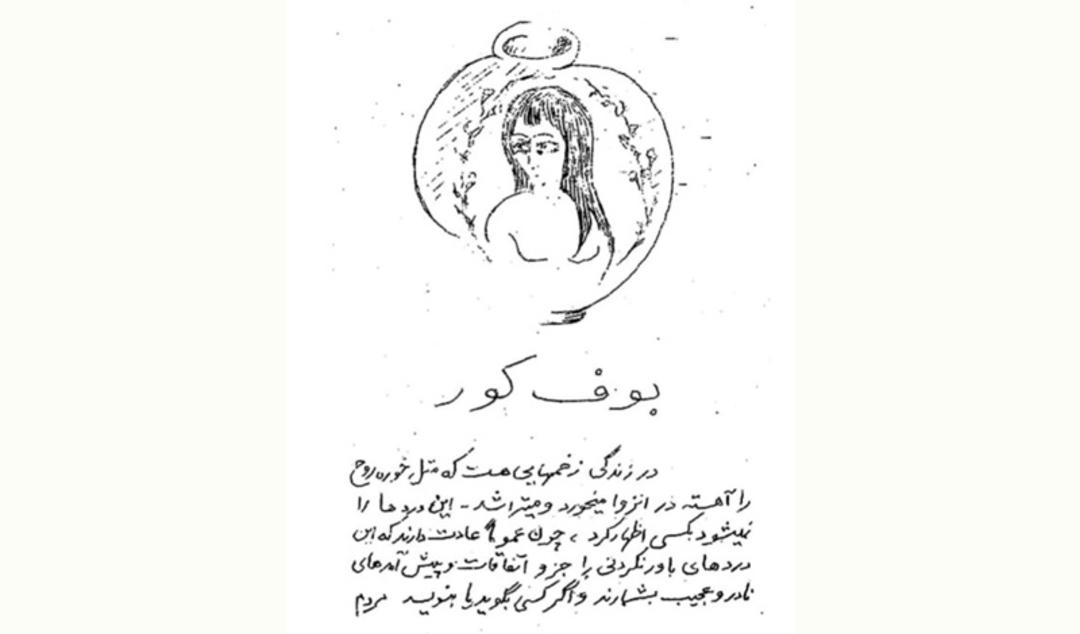 بوف کور
در زندگی زخمهایی هست که مثل خوره روح
را آهسته در انزوا میخورد و میتراشد - این دردها را
نمیشود بکسی اظهار کرد ، چون عموماً عادت دارند که این
دردهای باورنکردنی را جزو اتفاقات و پیش آمدهای
نادر و عجیب بشمارند و اگر کسی بگوید یا بنویسد مردم